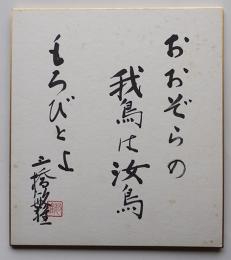 おおぞらの
我鳥は汝鳥
もろびとよ